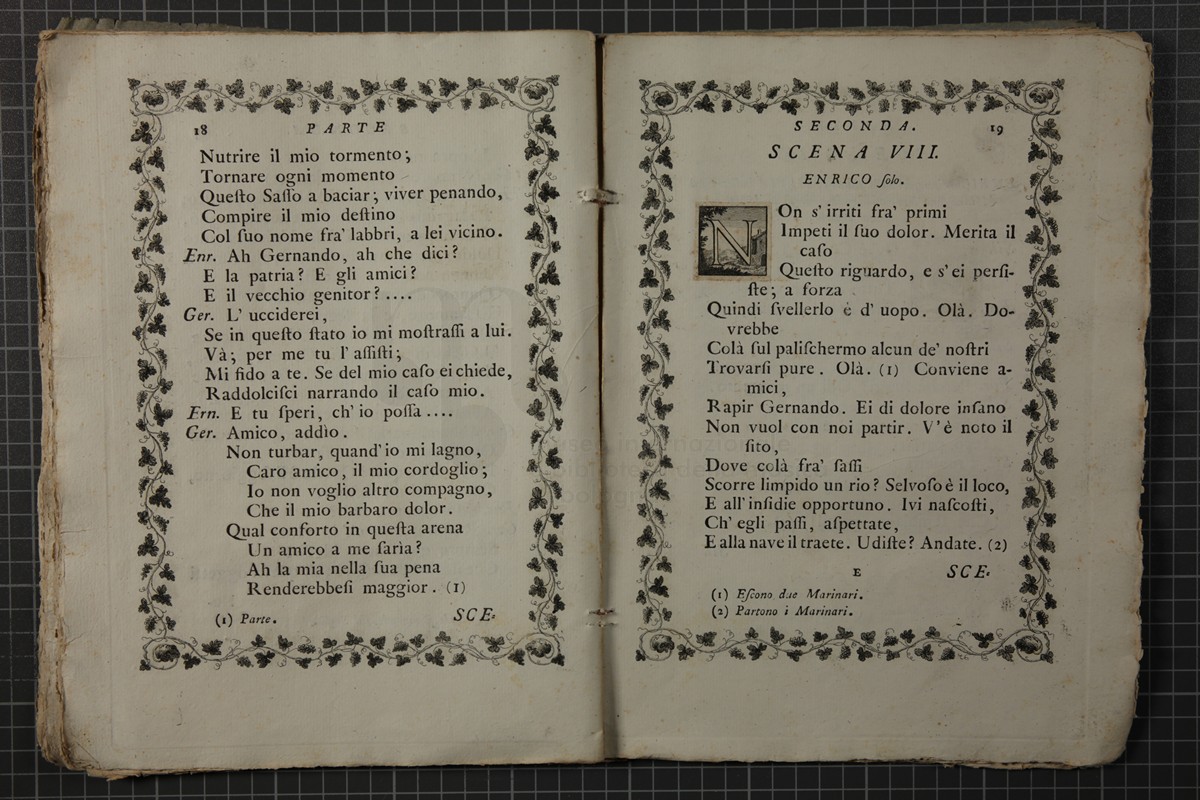 18 PARTE
Nutrire il mio tormento;
Tornare ogni momento
Queſto Saſſo a baciar; viver penando,
Compire il mio deſtino
Col ſuo nome fra' labbri, a lei vicino.
Enr. Ah Gernando, ah che dici?
E la patria? E gli amici?
E il vecchio genitor?....
Ger. L' ucciderei,
Se in queſto ſtato io mi moſtraſſi a lui.
Và; per me tu l' aſſiſti;
Mi fido a te. Se del mio caſo ei chiede,
Raddolciſci narrando il caſo mio.
Ern. E tu ſperi, ch' io poſſa....
Ger. Amico, addìo.
Non turbar, quand' io mi lagno,
Caro amico, il mio cordoglio;
Io non voglio altro compagno,
Che il mio barbaro dolor.
Qual conforto in queſta arena
Un amico a me ſarìa?
Ah la mia nella ſua pena
Renderebbeſi maggior. (1)
(1) Parte.
SCE-
SECONDA. 19
SCENA VIII.
ENRICO ſolo.
NOn s' irriti fra' primi
Impeti il ſuo dolor. Merita il
caſo
Queſto riguardo, e s' ei perſi-
ſte; a forza
Quindi ſvellerlo è d' uopo. Olà. Do-
vrebbe
Colà ſul paliſchermo alcun de' noſtri
Trovarſi pure. Olà. (1) Conviene a-
mici,
Rapir Gernando. Ei di dolore inſano
Non vuol con noi partir. V' è noto il
ſito,
Dove colà fra' ſaſſi
Scorre limpido un rio? Selvoſo è il loco,
E all' inſidie opportuno. Ivi naſcoſti,
Ch' egli paſſi, aſpettate,
E alla nave il traete. Udiſte? Andate. (2)
E SCE-
(1) Eſcono due Marinari.
(2) Partono i Marinari.